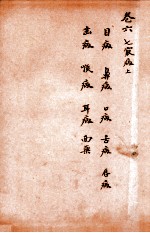 卷六 七竅病上
目病 鼻病 口病 舌病 唇病
齒病 喉病 耳病 面病